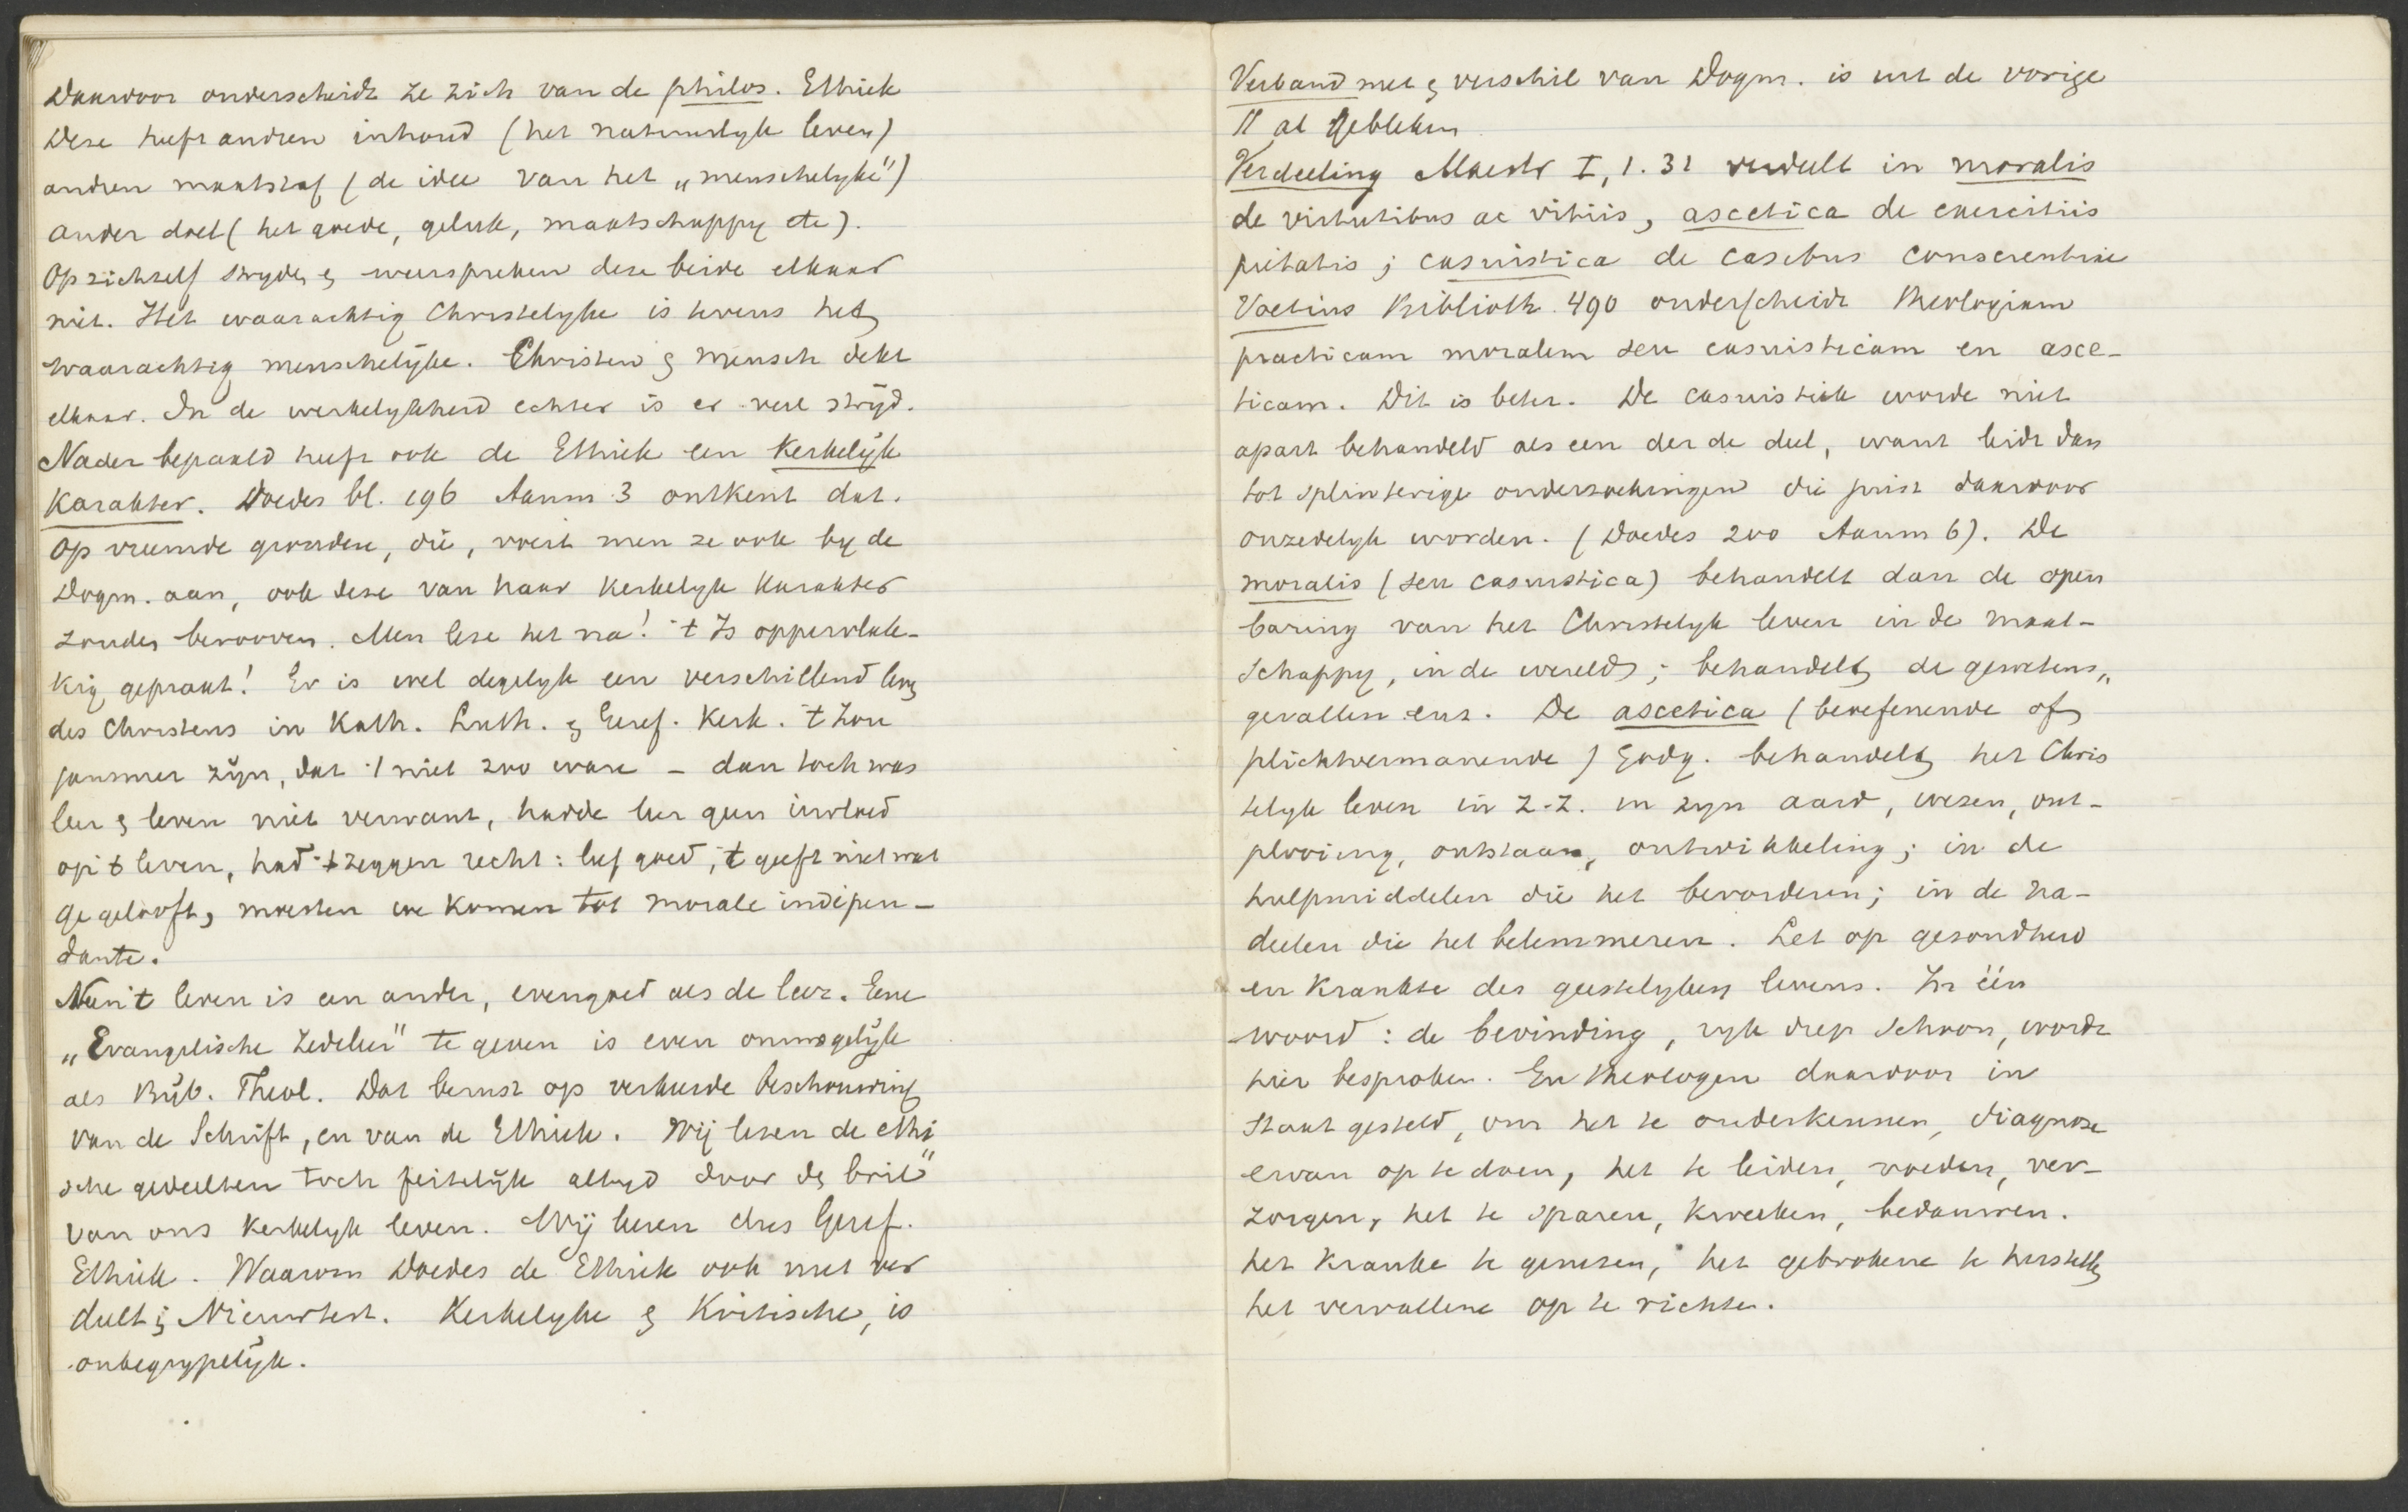 Daardoor onderscheidt ze zich van de philos. Ethiek
Deze heeft andren inhoud (het natuurlyk leven)
andren maatstaf (de idee van het „menschelyke")
ander doel (het goede, geluk, maatschappy etc).
Op zichzelf stryden en weerspreken deze beide elkaar
niet. Het waarachtig Christelyke is tevens het
waarachtig menschelijke. Christen en mensch dekt
elkaar. In de werkelykheid echter is er veel strijd.
Nader bepaald heeft ook de Ethiek een Kerkelijk
Karakter. Doedes bl. 196 Aanm 3 ontkent dat.
op vreemde gronden, die, voert men ze ook by de
Dogm. aan, ook deze van haar Kerkelyk Karakter
zouden berooven. Men leze het na! 't Is oppervlak-
kig gepraat! Er is wel degelyk een verschillend leven
des Christens in Kath. Luth. en Geref. Kerk. 't Zou
jammer zijn, dat 't niet zoo ware - dan toch was
leer en leven niet verwant, hadde leer geen invloed
op 't leven, had 't zeggen recht: leef goed, 't geeft niet wat
ge gelooft, moesten we komen tot morale indépen-
dante.
Neen 't leven is een ander, evengoed als de leer. Eene
„Evangelische Zedeleer" te geven is even onmogelijk
als Bijb. Theol. Dat berust op verkeerde beschouwing
van de Schrift, en van de Ethiek. Wij lezen de ethi
sche gedeelten toch feitelijk altyd door de „bril"
van ons Kerkelyk leven. Wij leeren dus Geref.
Ethiek. Waarom Doedes de Ethiek ook niet ver
deelt in Nieuwtest. Kerkelyke en Kritische, is
onbegrypelijk.
Verband met en verschil van Dogm. is uit de vorige
§§ al gebleken
Verdeeling Maestr I, 1. 31 verdeelt in moralis
de virtutibus ac vitiis, ascetica de exercitiis
pietatis; casuistica de casibus conscientiae
Voetius Biblioth. 490 onderscheidt theologiam
practicam moralem seu casuisticam en asce-
ticam. Dit is beter. De casuistiek worde niet
apart behandeld als een derde deel, want leidt dan
tot splinterige onderzoekingen die juist daardoor
onzedelyk worden. (Doedes 200 Aanm 6). De
moralis (seu casuistica) behandelt dan de open
baring van het Christelyk leven in de maat-
schappy, in de wereld; behandelt de gewetens„
gevallen enz. De ascetica (beoefenende of
plichtvermanende) Godg. behandelt het Chris
telyk leven in z.z. in zyn aard, wezen, ont-
plooiing, ontstaan, ontwikkeling; in de
hulpmiddelen die het bevorderen; in de na-
deelen die het belemmeren. Let op gezondheid
en krankte des geestelyken levens. In één
woord: de bevinding, ryk diep schoon, wordt
hier besproken. En theologen daardoor in
staat gesteld, om het te onderkennen, diagnose
ervan op te doen, het te leiden, voeden, ver-
zorgen, het te sparen, kweeken, bedauwen.
het kranke te genezen, het gebrokene te herstellen
het vervallene op te richten.